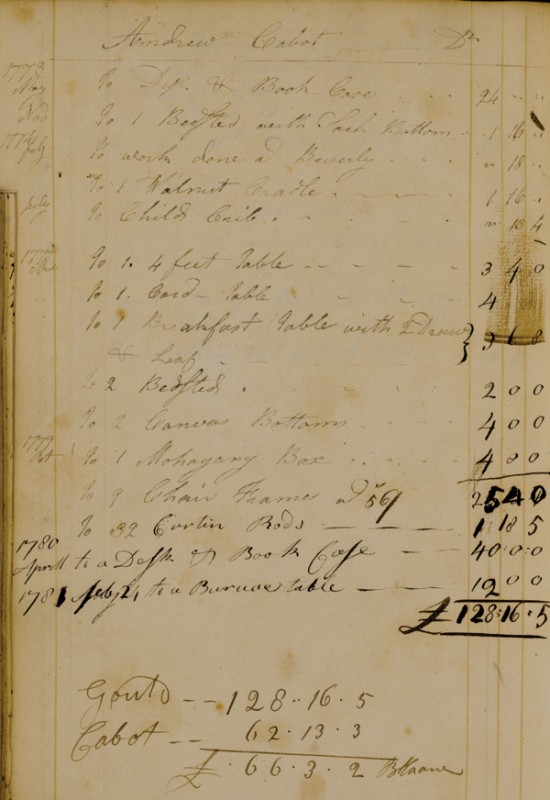 Andrew Cabot Dr
1773 May To Desk & Book Case 24 " "
Nov To 1 Bedsted with Sack Bottom 1 16 "
1774 July To work done a Beverly " 18 "
To 1 Walnut Cradle 1 16 "
July To Childs Crib " 13 4
To 1. 4 feet Table 3 4 0
To 1. Card Table 4
To 1 Breakfast Table with 2 Draws } 3 6 8
& Leaf
To 2 Bedsted 2 0 0
To 2 Canvas Bottoms 4 0 0
1777 Oct To 1 Mohagany Box 4 0 0
To 9 Chair Frames a 56/ 25 4 0
To 32 Curtin Rods 1 18 5
1780 Aprill to a Desk & Book Case 40 0 0
1781 July 24 to a Buruae table 12 0 0
£ 128 16 5
Gould -- 128 . 16 . 5
Cabot -- 62 . 13 . 3
£ . 66 . 3 . 2